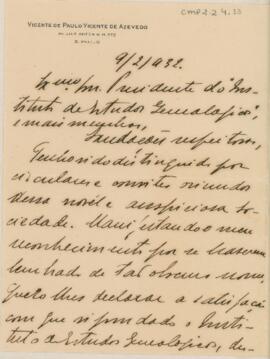 VICENTE DE PAULO VICENTE DE AZEVEDO
S. PAULO
CMP 2.2.4.33
9/2/932.
Exmo. Snr. Presidente do "Ins-
tituto de Estudos Genealogicos",
e mais membros,
Saudações respeitosas,
Tenho sido distinguido por
circulares e convites oriundos
dessa novel e auspiciosa so-
ciedade. Manifestando o meu
reconhecimento por se haverem
lembrado de tão obscuro nome,
quero lhes declarar a satisfação
com que vi fundado o Insti-
tuto de Estudos Genealogicos, des-